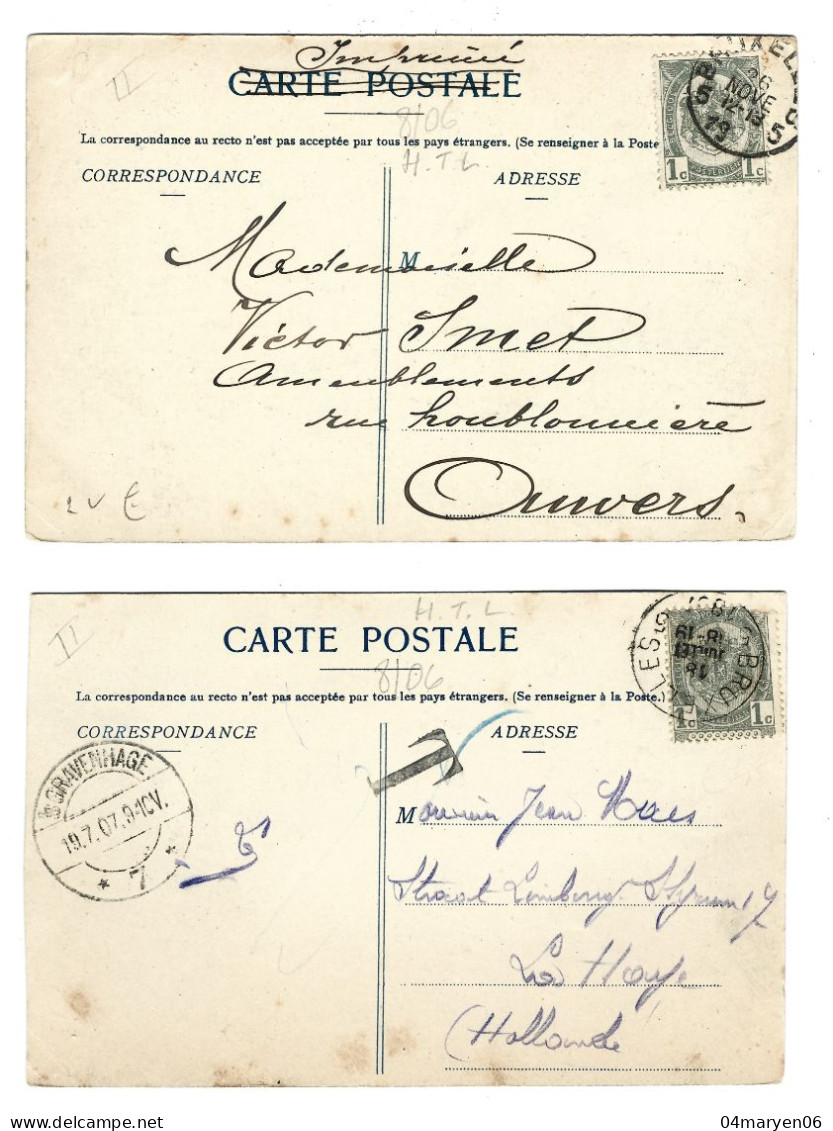 Imprimé
CARTE POSTALE
II
8/06
H.T.L.
La correspondance au recto n'est pas acceptée par tous les pays étrangers. (Se renseigner à la Poste
CORRESPONDANCE
ADRESSE
BRUXELLES 5
26
NOVE
12-13
19
5
1c 1c
M
Mademoiselle
Victor Smet
Ameublements
rue houblonnière
Anvers.
H.T.L.
II
CARTE POSTALE
8/06
La correspondance au recto n'est pas acceptée par tous les pays étrangers. (Se renseigner à la Poste.)
CORRESPONDANCE
ADRESSE
18
JUILLET
18-19
1c 1c
T
'SGRAVENHAGE
19.7.07.9-10V.
* 7 *
Monsieur Jean Maes
Straat Limburg Styrum 17
La Haye
(Hollande
04maryen06